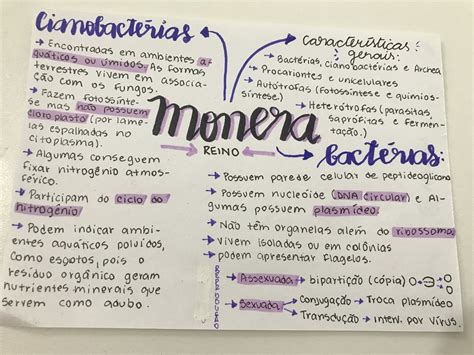 Cianobactérias
→ Encontradas em ambientes a-
quáticos ou úmidos. As formas
terrestres vivem em associa-
ção com os fungos.
→ Fazem fotossínte-
se mas não possuem
cloroplasto (por lame-
las espalhadas no
citoplasma).
→ Algumas conseguem
fixar nitrogênio atmos-
férico.
→ Participam do ciclo do
nitrogênio
→ Podem indicar ambi-
entes aquáticos poluídos,
Como esgotos, pois o
resíduo orgânico geram
nutrientes minerais que
servem como adubo.
monera
REINO
Características
gerais:
→ Bactérias, cianobactérias e Archea
→ Procariontes e unicelulares
→ Autótrofas (Fotossíntese e quimios-
síntese.)
→ Heterótrofas (parasitas,
saprófitas e fermen-
tação.)
bactérias:
→ Possuem parede celular de peptideoglicana
→ Possuem nucleóide (DNA circular) e Al-
gumas possuem plasmídeo.
→ Não têm organelas além do ribossomo
→ Vivem isoladas ou em colônias
e podem apresentar flagelos.
REPRODUÇÃO
→ Assexuada → bipartição (cópia)
→ Sexuada → Conjugação → Troca plasmídeo
→ Transdução → interv. por vírus.